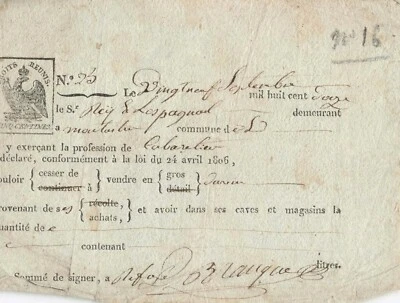 n° 16
DROITS RÉUNIS.
CINQ CENTIMES.
N.° 23
Le Vingt neuf Septembre
mil huit cent douze
le S.r demeurant
a commune d
y exerçant la profession de Cabaretier
déclaré, conformément à la loi du 24 avril 1806,
ouloir { cesser de continuer à } vendre en { gros détail }
provenant de ses { récolte, achats, } et avoir dans ses caves et magasins la
quantité de
contenant litres.
Sommé de signer, a